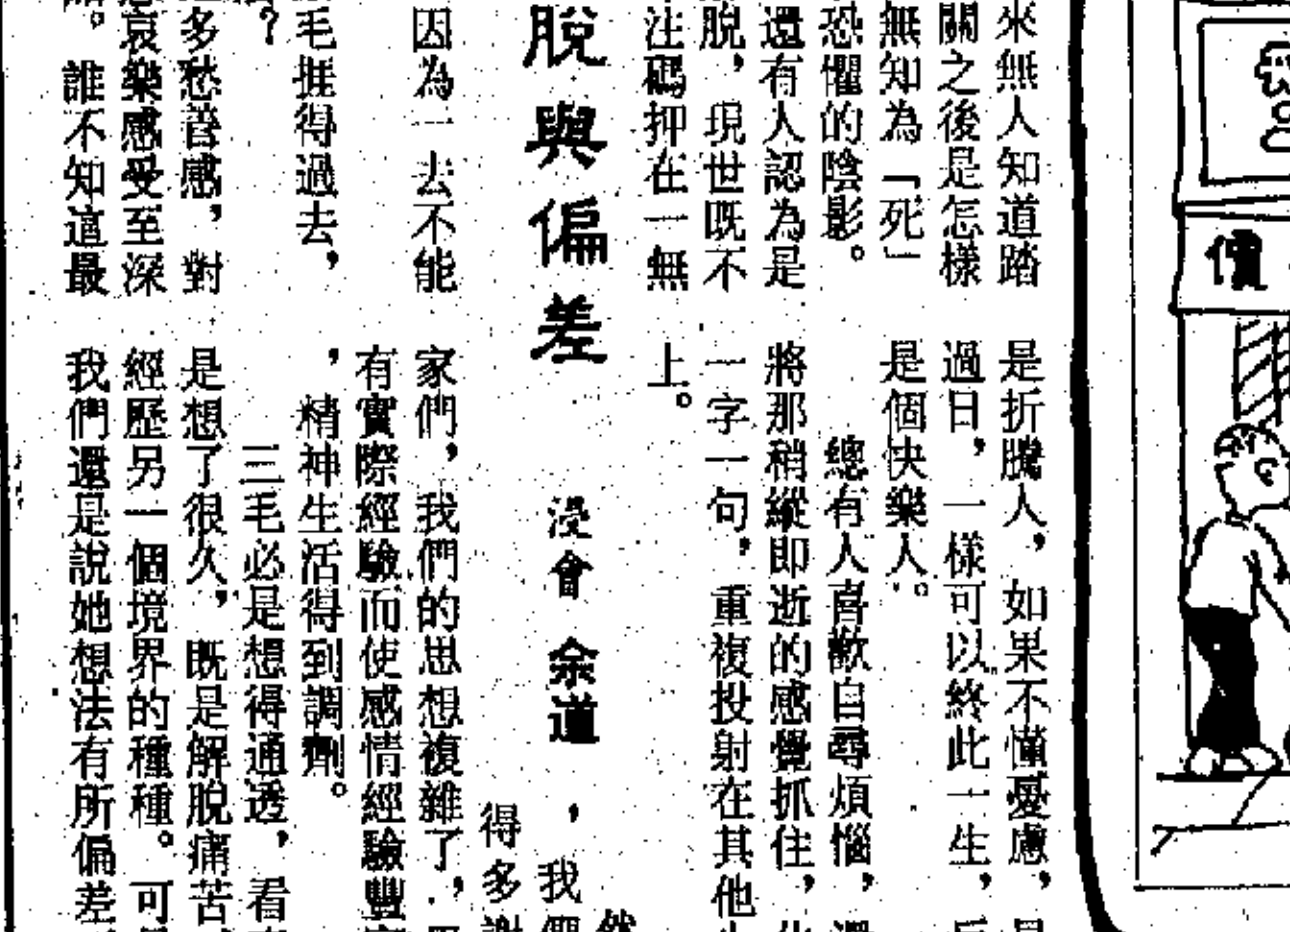 價
脫與偏差
浸會 余道
來無人知道踏
關之後是怎樣
無知為「死」
恐懼的陰影。
還有人認為是
脫，現世既不
注碼押在一無
因為一去不能
毛捱得過去，
？
多愁善感，對
哀樂感受至深
。誰不知這最
是折騰人，如果不懂憂慮，
過日，一樣可以終此一生，
是個快樂人。
總有人喜歡自尋煩惱，
將那稍縱即逝的感覺抓住，
一字一句，重複投射在其他
上。
，我們
得多謝
家們，我們的思想複雜了，
有實際經驗而使感情經驗豐
，精神生活得到調劑。
三毛必是想得通透，看
是想了很久，既是解脫痛苦
經歷另一個境界的種種。可
我們還是說她想法有所偏差